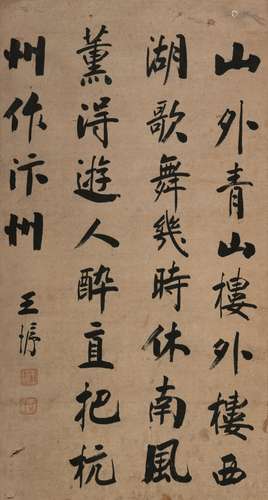 山外青山樓外樓西
湖歌舞幾時休南風
薰得遊人醉直把杭
州作汴州
王塝